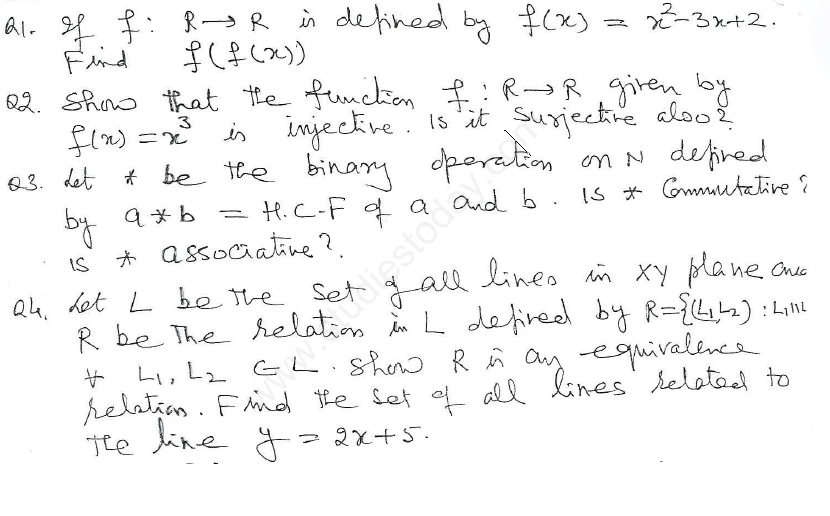 Q1. If f: R→R is defined by f(x) = x²-3x+2.
Find f(f(x))
Q2. Show that the function f: R→R given by
f(x) = x³ is injective. Is it surjective also?
Q3. Let * be the binary operation on N defined
by a*b = H.C.F of a and b. Is * Commutative?
Is * associative?.
Q4. Let L be the set of all lines in XY plane and
R be the relation in L defined by R={(L₁,L₂) : L₁||
∀ L₁, L₂ ∈ L. Show R is an equivalence
relation. Find the set of all lines related to
the line y = 2x+5.
www.studiestoday.com